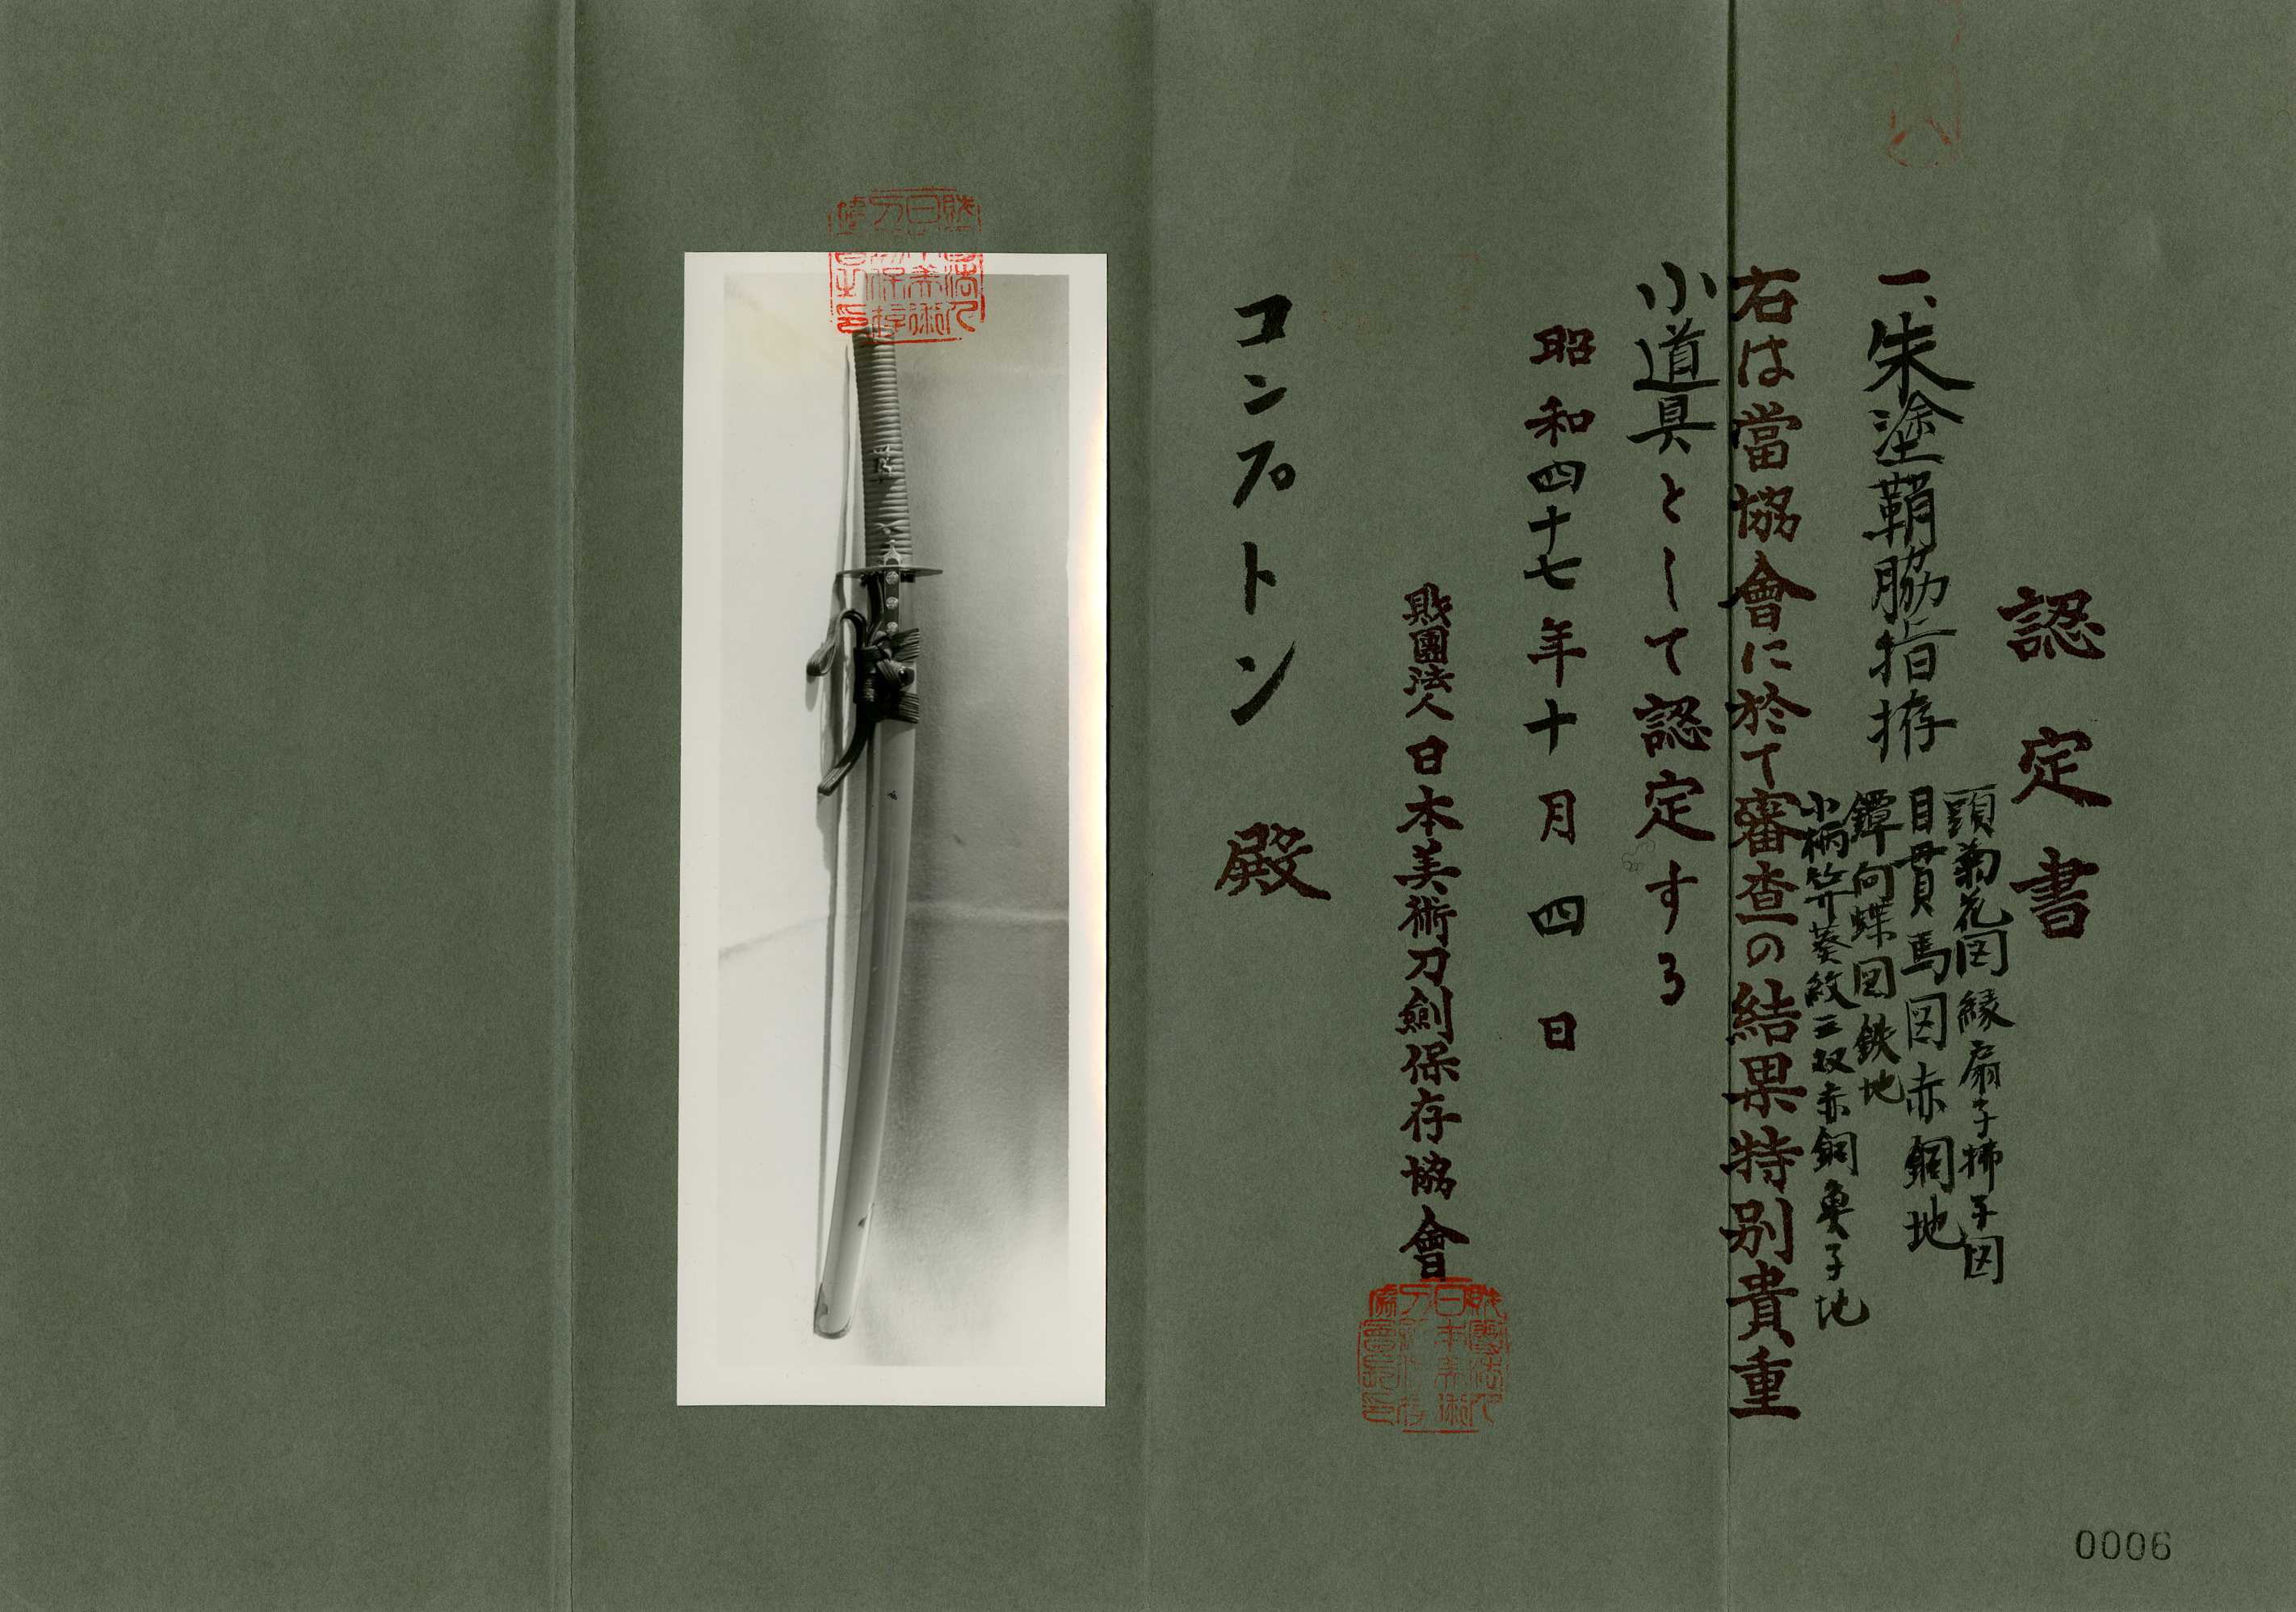 認定書
一、朱塗鞘脇指拵
頭菊花図縁扇子払子図
目貫馬図赤銅地
鐔向蝶図鉄地
小柄笄葵紋三双赤銅魚子地
右は當協會に於て審査の結果特別貴重
小道具として認定する
昭和四十七年十月四日
財團法人日本美術刀劍保存協會
コンプトン 殿
0006